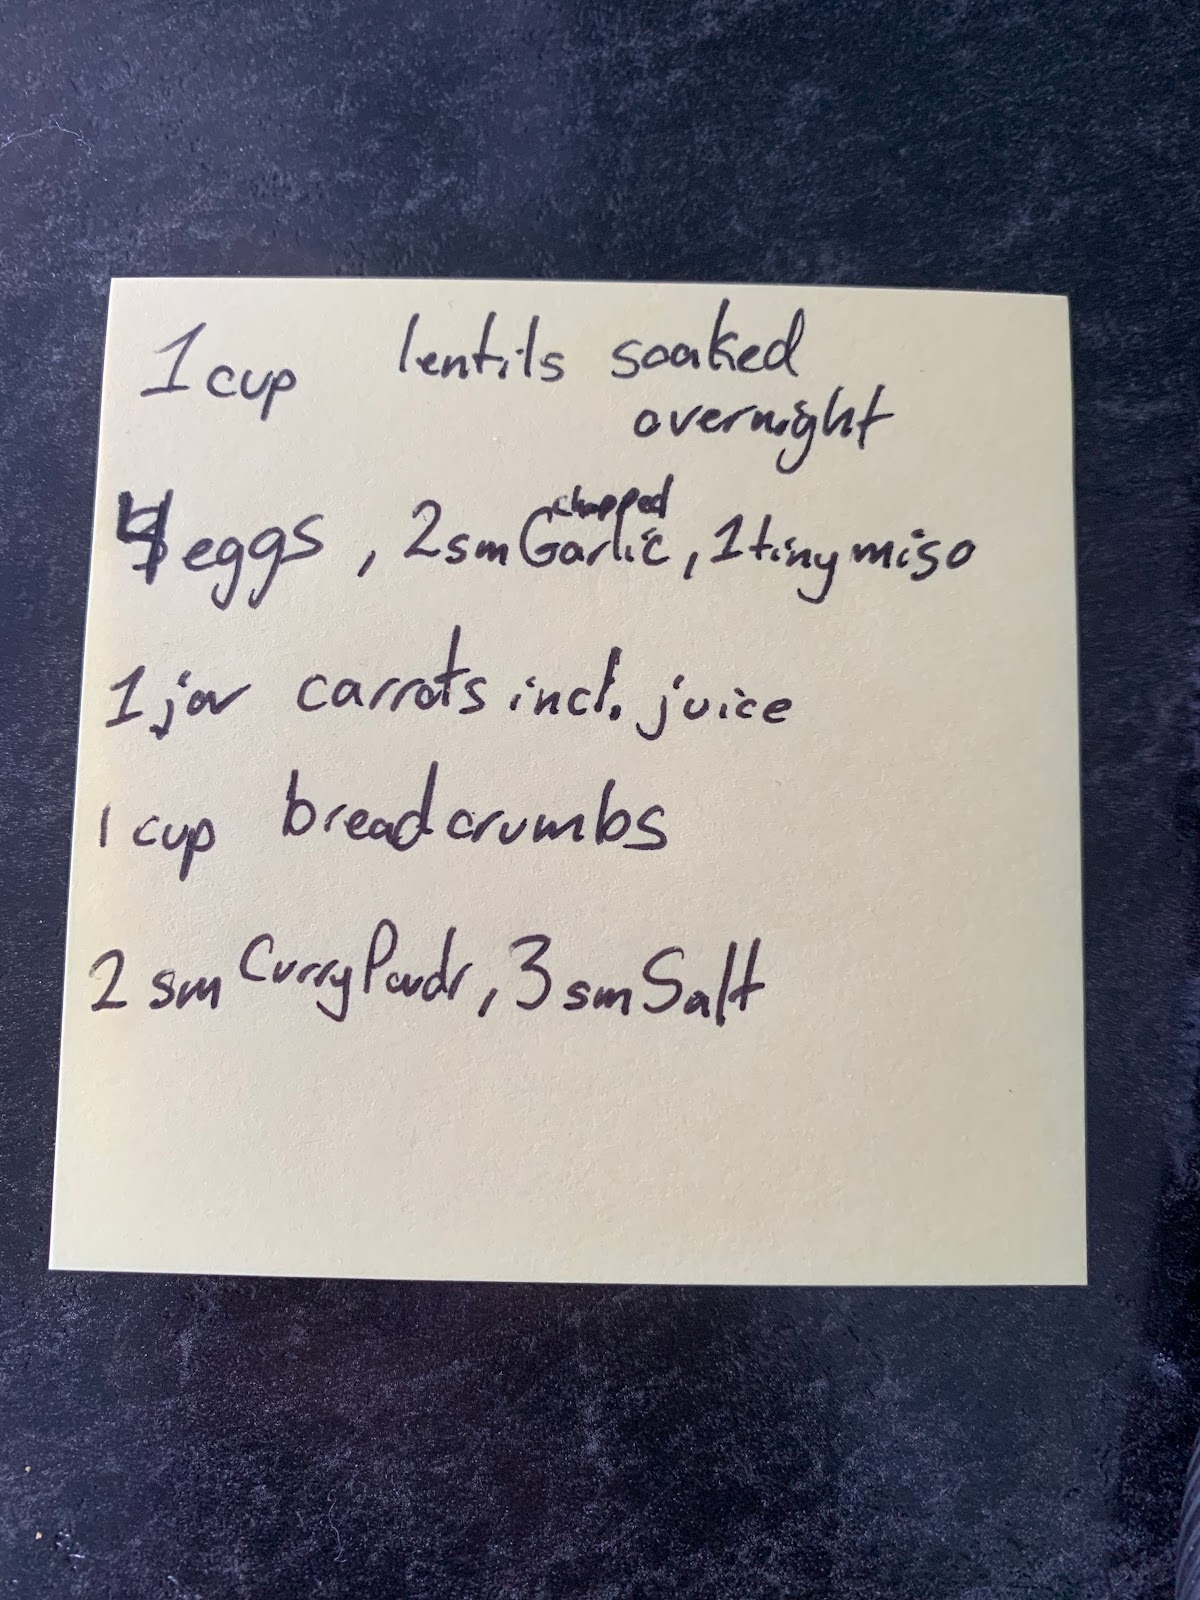 1 cup lentils soaked
overnight
4 eggs, 2 sm chopped Garlic, 1 tiny miso
1 jar carrots incl. juice
1 cup breadcrumbs
2 sm Curry Powdr, 3 sm Salt